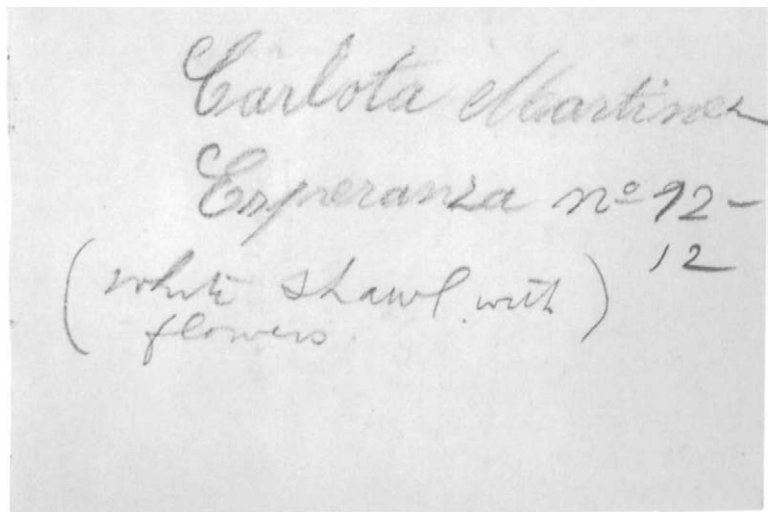 Carlota Martinez
Esperanza nº 92-
12
(white shawl with
flowers)